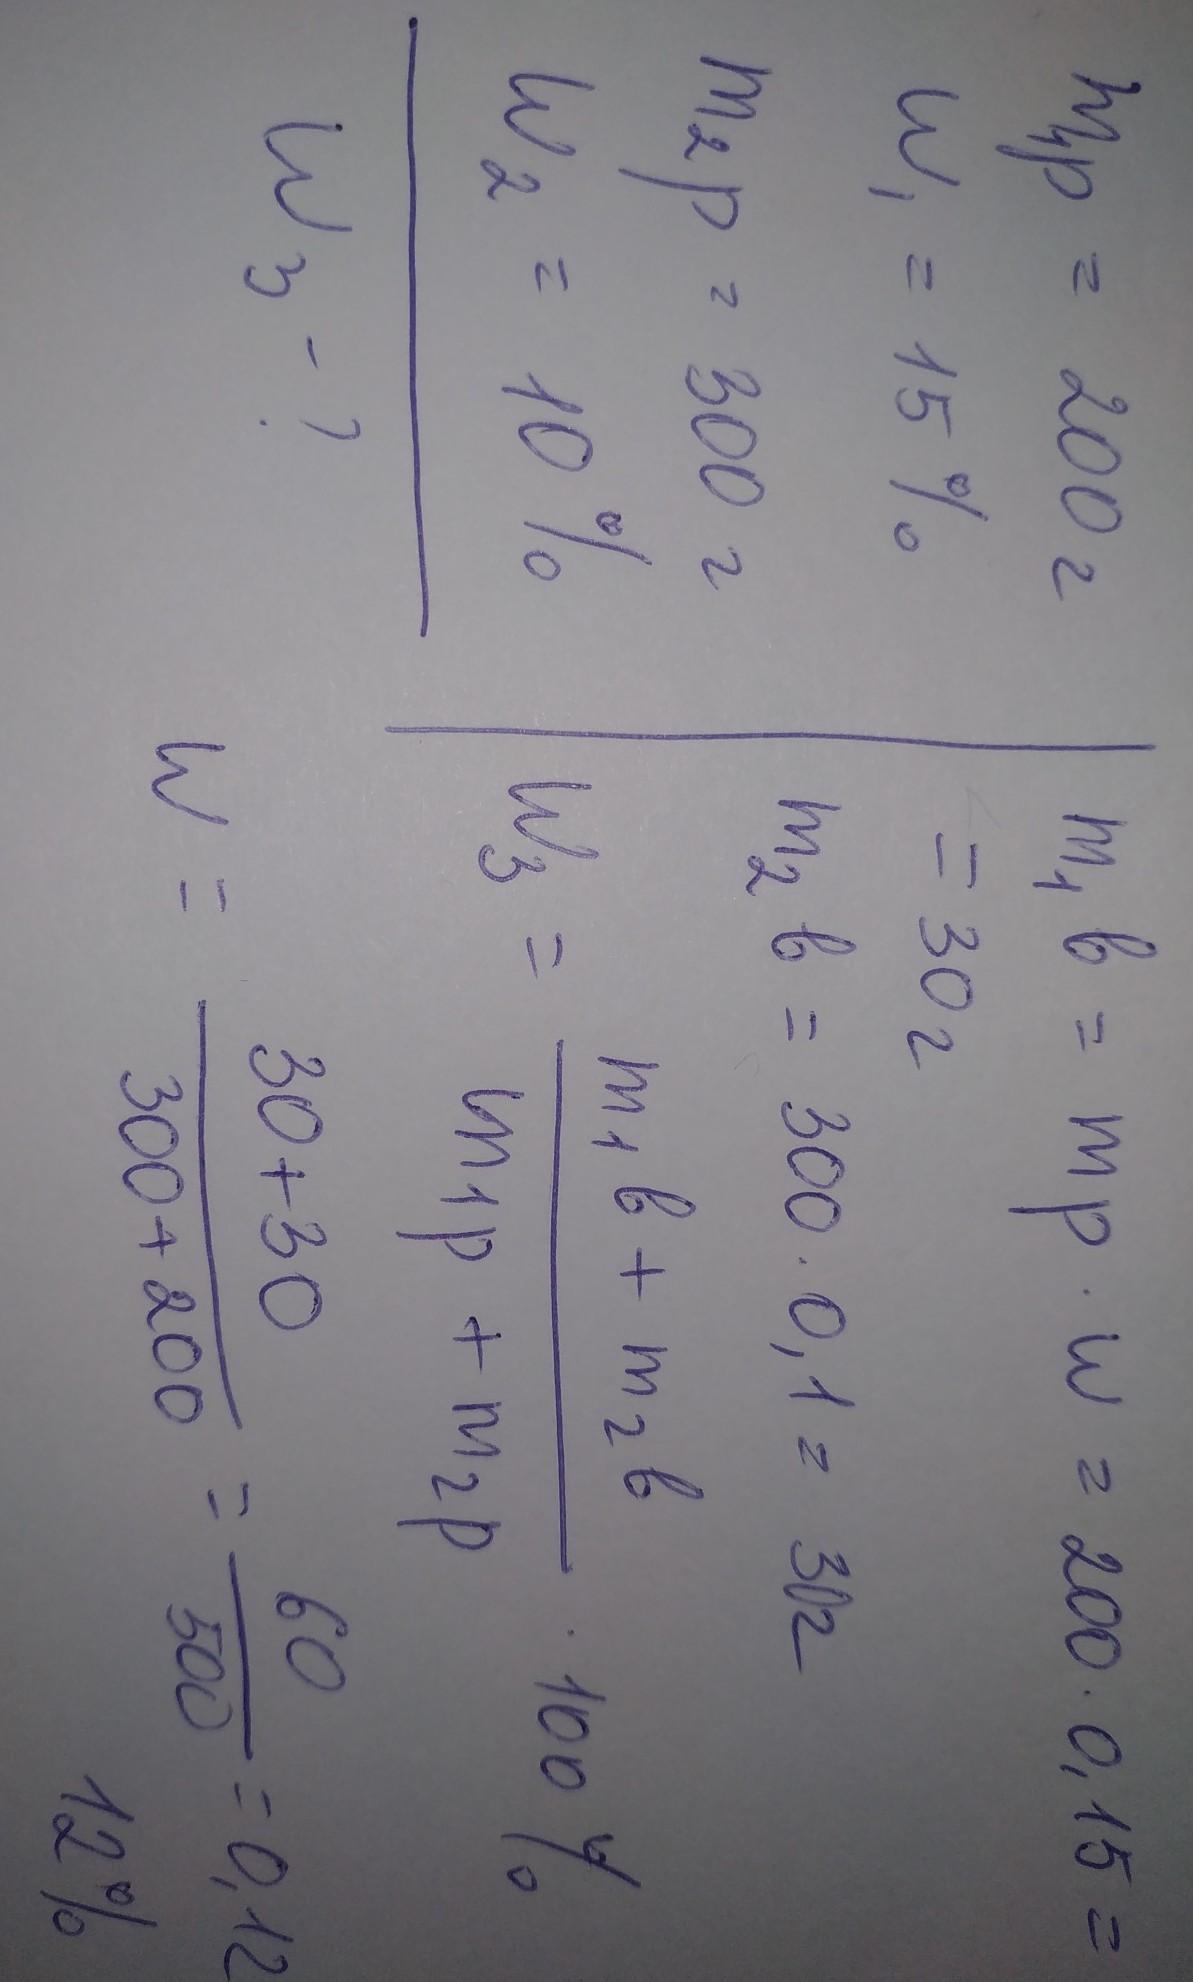 m₁р = 200 г
W₁ = 15 %
m₂р = 300 г
W₂ = 10 %
W₃ - ?
m₁в = mр · w = 200 · 0,15 =
= 30 г
m₂в = 300 · 0,1 = 30г
W₃ = (m₁в + m₂в) / (m₁р + m₂р) · 100 %
W = (30+30) / (300+200) = 60 / 500 = 0,12
12%